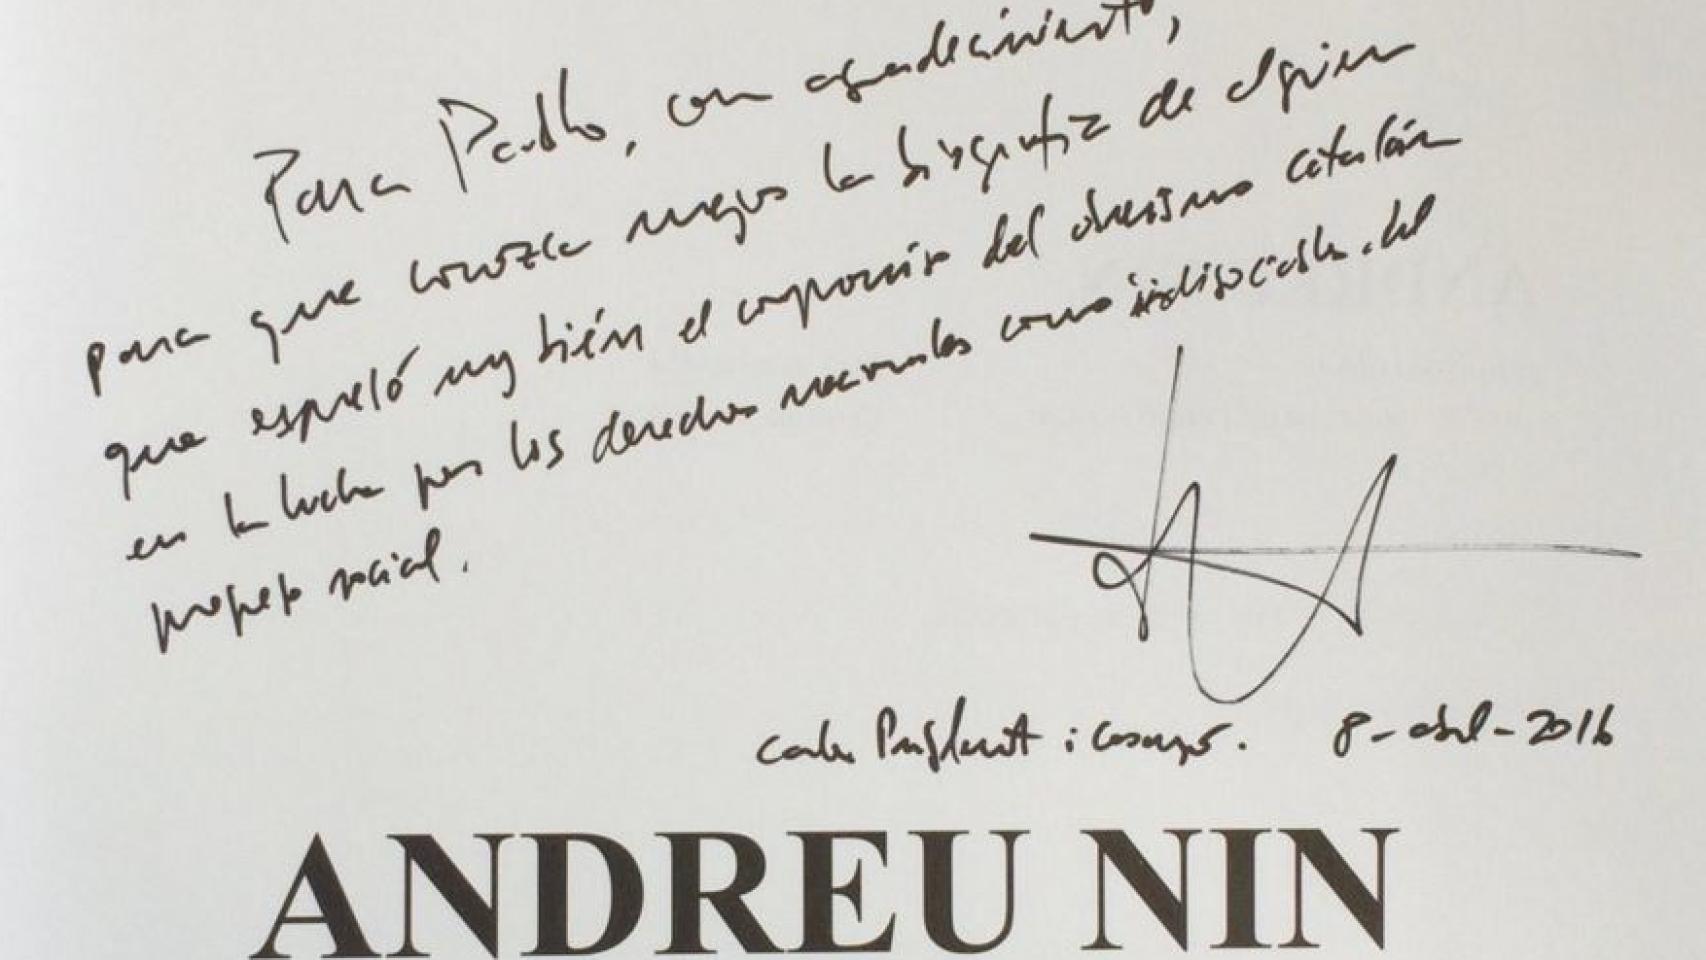 Para Pablo, con agradecimiento,
para que conozca mejor la biografía de alguien
que espieló muy bién el compromiso del obrerismo catalán
en la lucha por los derechos nacionales como indisociable del
progreso social.
Carles Puigdemont i Casamajó. 8-abril-2016
ANDREU NIN